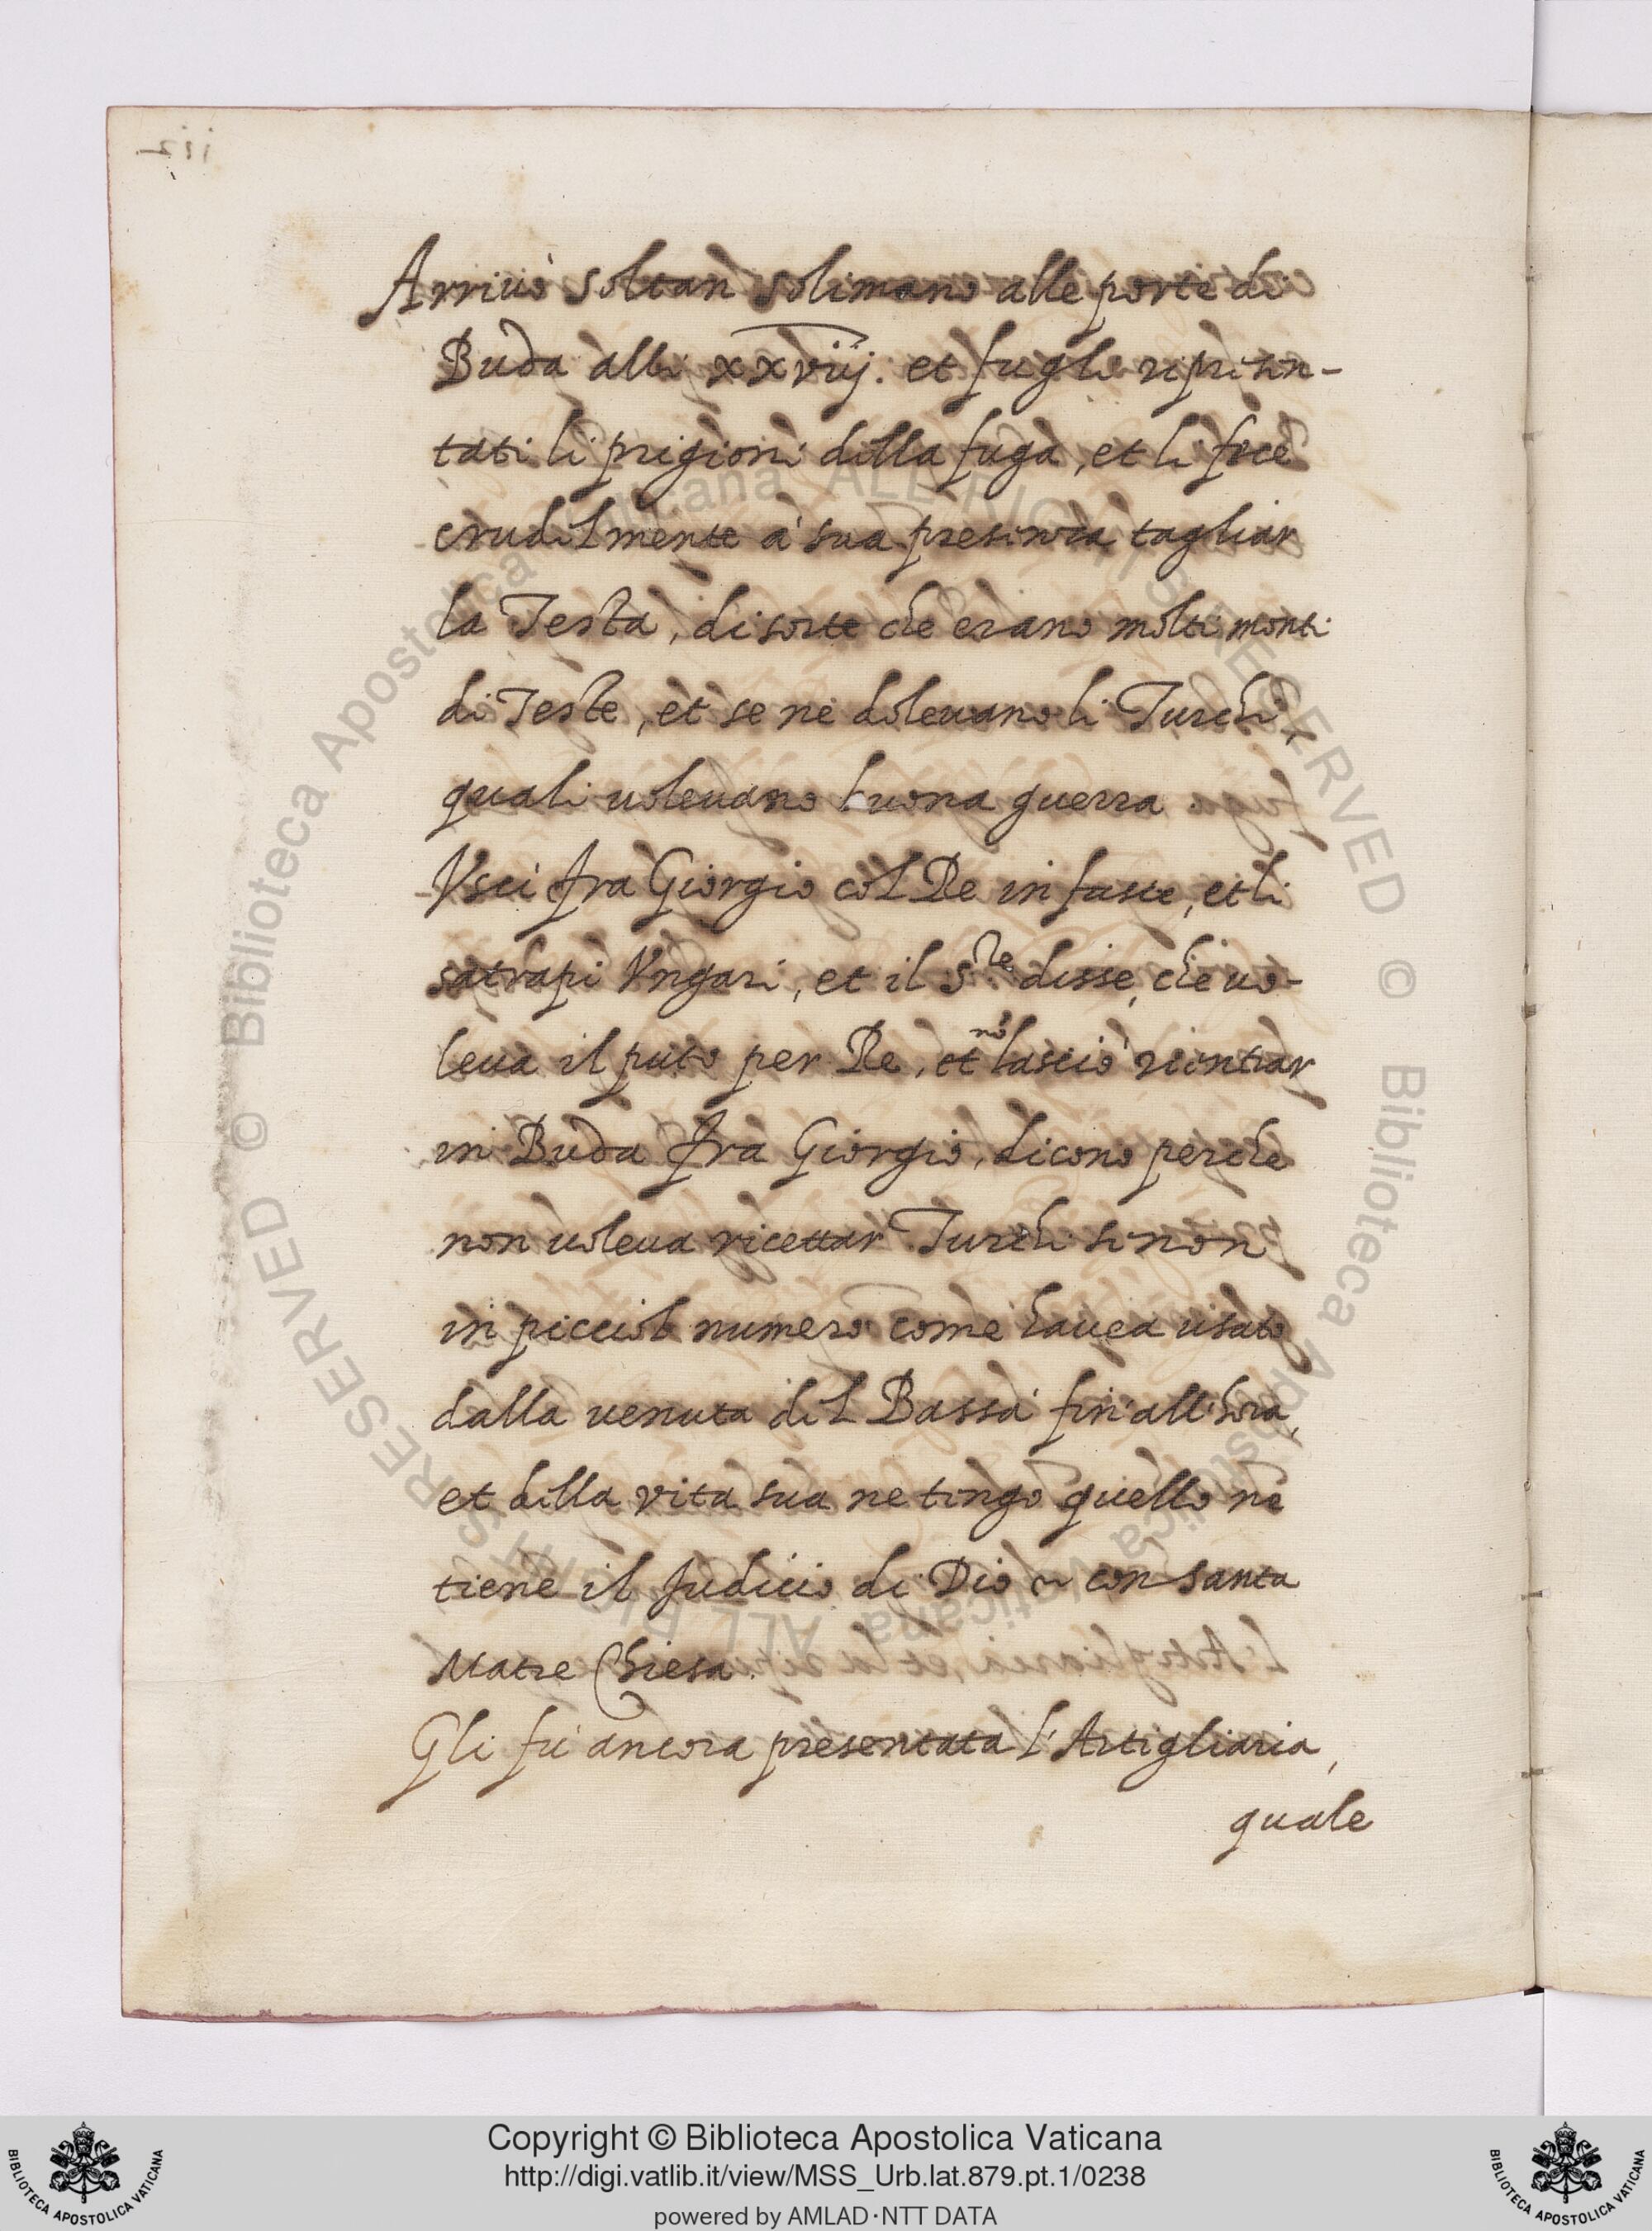 Arriuò Soltan Solimano alle porte di
Buda alli xxviij. et fugli represen-
tati li prigioni della fuga, et li fece
crudelmente à sua presenza tagliar
la Testa, di sorte che erano molti monti
di Teste, et se ne doleuano li Turchi,
quali uoleuano buona guerra.
Vsci fra Giorgio col Re in fasce, et li
satrapi Vngari, et il S.re disse, che uo-
leua il puto per Re, et nõ lasciò rientrar
in Buda fra Giorgio, dicono perche
non uoleua ricettar Turchi se non
in picciol numero come hauea usato
dalla venuta del Bassà fin'all'hora,
et della vita sua ne tengo quello ne
tiene il Judicio di Dio con santa
Matre Chiesa.
Gli fù ancora presentata l'Artigliaria,
quale
Copyright © Biblioteca Apostolica Vaticana
http://digi.vatlib.it/view/MSS_Urb.lat.879.pt.1/0238
powered by AMLAD·NTT DATA
BIBLIOTECA APOSTOLICA VATICANA
BIBLIOTECA APOSTOLICA VATICANA